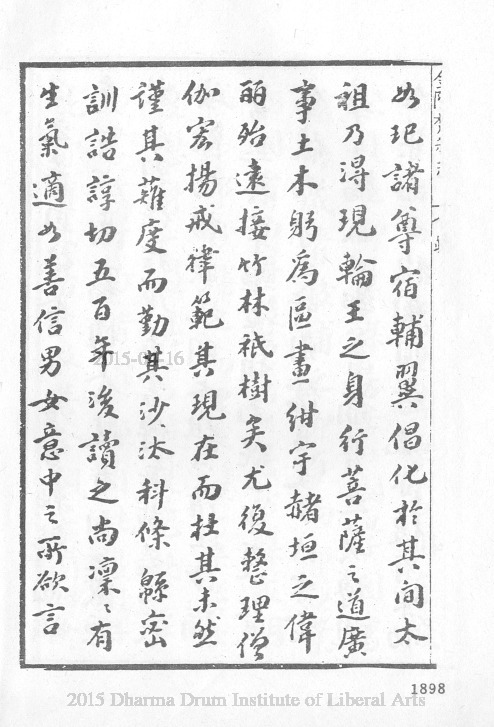 如玘諸尊宿輔翼倡化於其間太
祖乃得現輪王之身行菩薩之道廣
事土木躬為區畫紺宇赭垣之偉
麗殆遠接竹林祇樹矣尤復整理僧
伽宏揚戒律範其現在而杜其未然
謹其薙度而勤其沙汰科條緜密
訓誥諄切五百年後讀之尚凜〻有
生氣適如善信男女意中之所欲言
1898
2015-04-16
2015 Dharma Drum Institute of Liberal Arts